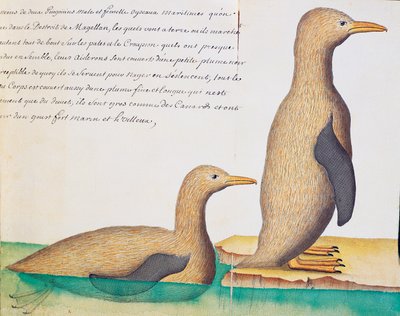 de deux Pingoüins Masle et femelle Oyseaux maritimes qu'on
dans le Destroit de Magellan, les quels vont a terre ou ils marche
tout de bout sur les pates et le Croupion quils ont presque
ensemble, leurs Aislerons sont couverts d'une petite plume noir
de quoy ils se servent pour Nager en Sedancent, tout les
Corps est couvert aussy d'une plume fine et longue qui reste
que du duuet, ils sont gros comme des Canards et ont
un goust fort marin et huilleux,